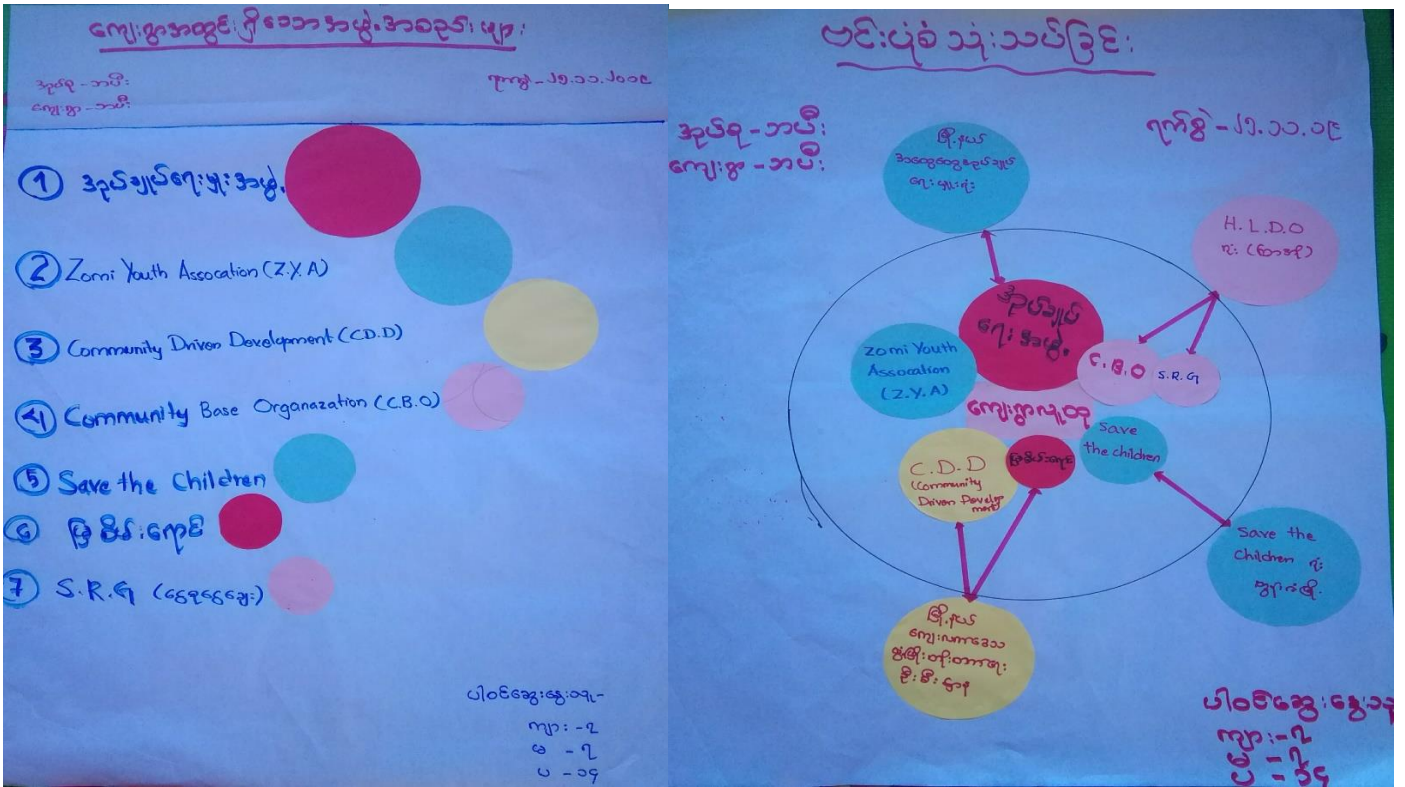 ကျေးရွာအတွင်းရှိသောအဖွဲ့အစည်းများ
အုပ်စု - ဘပီး
ကျေးရွာ - ဘပီး
ရက်စွဲ - ၂၅.၁၁.၂၀၁၉
① အုပ်ချုပ်ရေးမှူးအဖွဲ့
② Zomi Youth Assocation (Z.Y.A)
③ Community Driven Development (C.D.D)
④ Community Base Organazation (C.B.O)
⑤ Save the Children
⑥ မြစိမ်းရောင်
⑦ S.R.G (ငွေစုငွေချေး)
ပါဝင်ဆွေးနွေးသူ-
ကျား - ၇
မ - ၇
ပ - ၁၄
ဗင်းပုံစံသုံးသပ်ခြင်း
အုပ်စု - ဘပီး
ကျေးရွာ - ဘပီး
ရက်စွဲ - ၂၅.၁၁.၁၉
မြို့နယ်
အထွေထွေအုပ်ချုပ်
ရေးမှူးရုံး
H.L.D.O
ရုံး
အုပ်ချုပ်
ရေးအဖွဲ့
Zomi Youth
Assocation
(Z.Y.A)
C.B.O
S.R.G
ကျေးရွာလူထု
Save
the children
C.D.D
(Community
Driven Develop
ment)
မြစိမ်းရောင်
Save the
Children ရုံး
မြို့နယ်
ကျေးလက်ဒေသ
ဖွံ့ဖြိုးတိုးတက်ရေး
ဦးစီးဌာန
ပါဝင်ဆွေးနွေးသူ
ကျား - ၇
မ - ၇
ပ - ၁၄